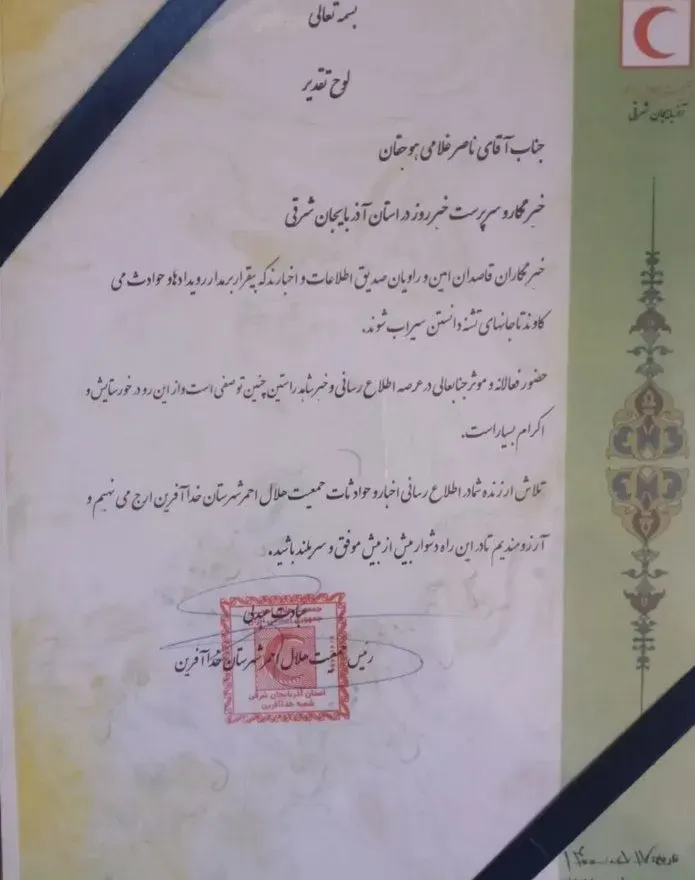 بسمه تعالی
لوح تقدیر
آذربایجان شرقی
جناب آقای ناصر غلامی هوجقان
خبرنگار و سرپرست خبر روز در استان آذربایجان شرقی
خبرنگاران قاصدان امین و راویان صدیق اطلاعات و اخبارند که بیقرار بر مدار رویدادها و حوادث می
کاوند تا جانهای تشنه دانستن سیراب شوند.
حضور فعالانه و موثر جنابعالی در عرصه اطلاع رسانی و خبر شاهد راستین چنین توصفی است و از این رو در خور ستایش و
اکرام بسیار است.
تلاش ارزنده شما در اطلاع رسانی اخبار و حوادثات جمعیت هلال احمر شهرستان خداآفرین ارج می نهیم و
آرزومندیم تا در این راه دشوار بیش از بیش موفق و سربلند باشید.
عبادت عبدلی
رئیس جمعیت هلال احمر شهرستان خداآفرین
استان آذربایجان شرقی
شعبه خداآفرین
تاریخ: